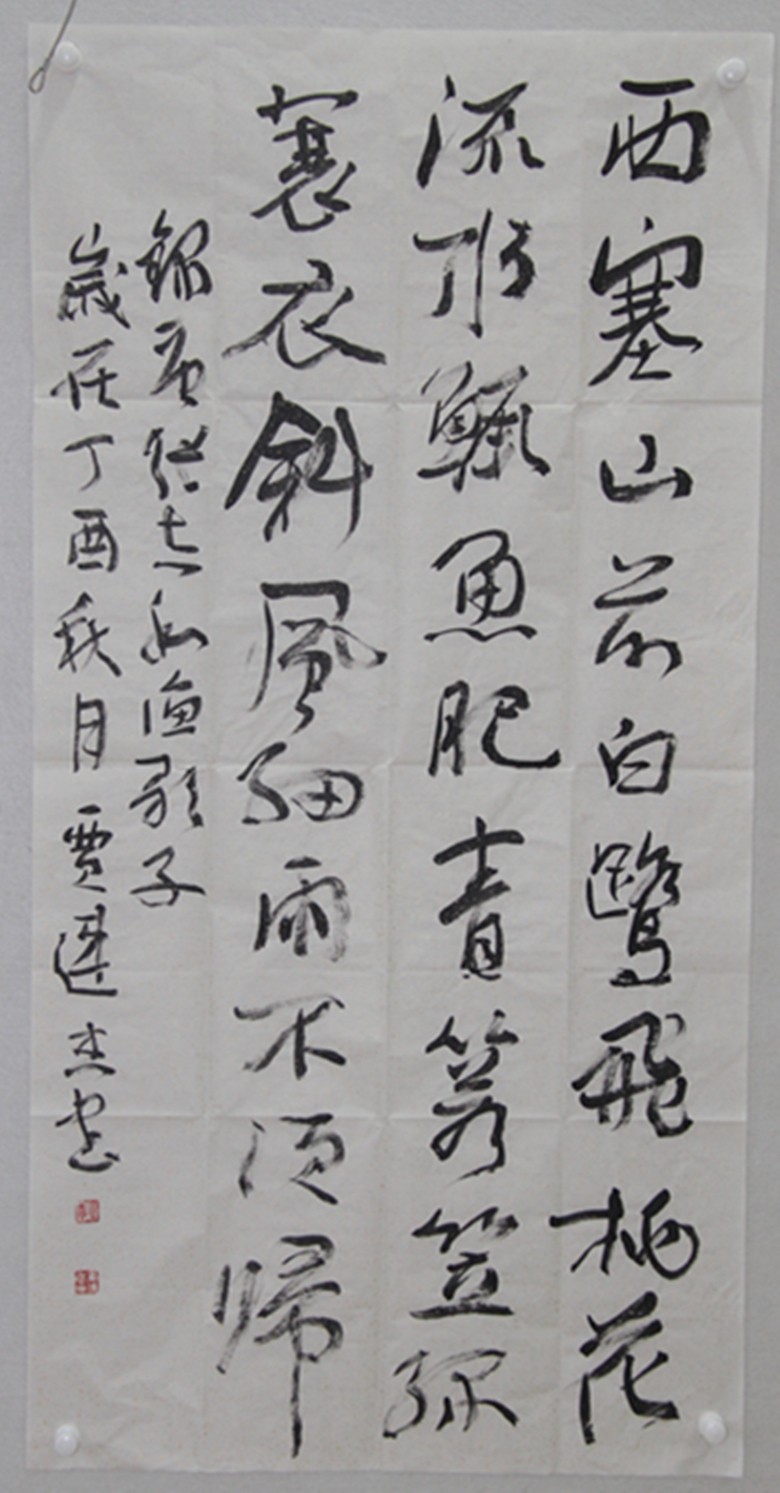 西塞山前白鷺飛桃花
流水鱖魚肥青箬笠綠
蓑衣斜風細雨不須帰
錄唐張志和漁歌子
歲在丁酉秋月賈杰書